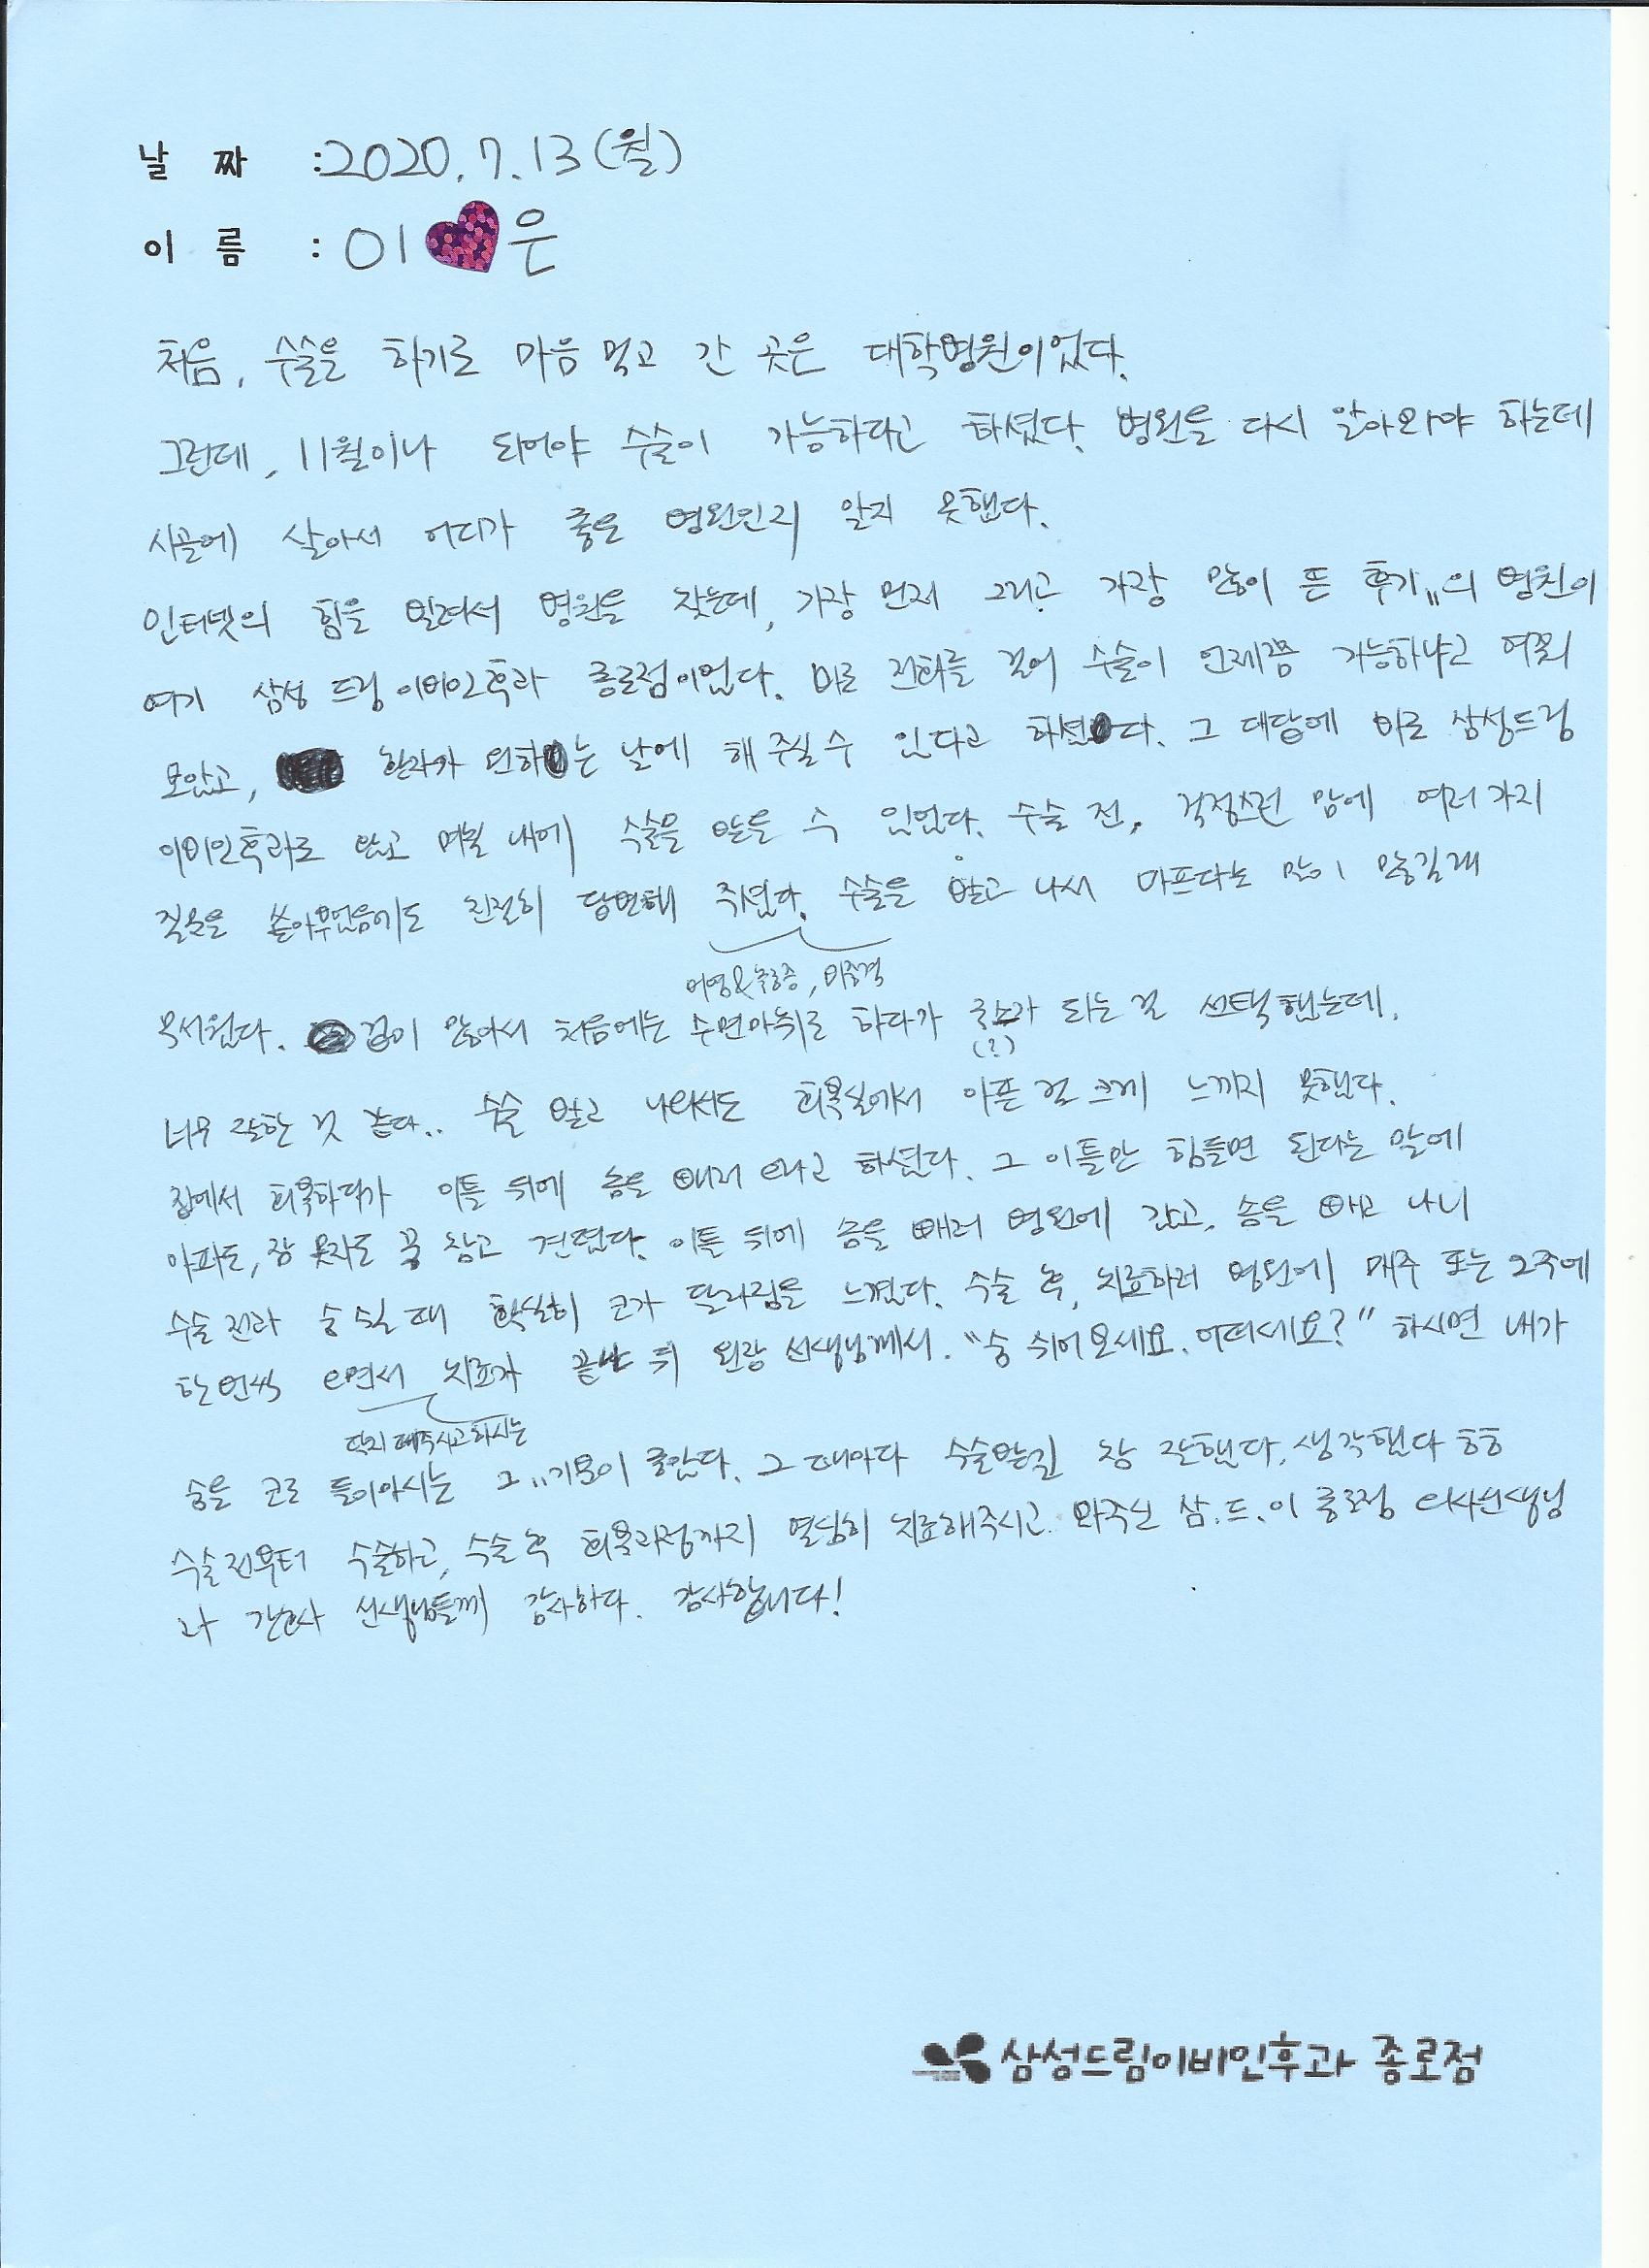 날 짜 : 2020. 7. 13 (월)
이 름 : 이 은
처음, 수술을 하기로 마음 먹고 간 곳은 대학병원이었다.
그런데, 11월이나 되어야 수술이 가능하다고 하셨다. 병원을 다시 알아봐야 하는데
시골에 살아서 어디가 좋은 병원인지 알지 못했다.
인터넷의 힘을 빌려서 병원을 찾는데, 가장 먼저 그리고 가장 많이 뜬 후기"의 병원이
여기 삼성 드림 이비인후과 종로점이었다. 바로 전화를 걸어 수술이 언제쯤 가능하냐고 여쭤
보았고, 환자가 원하는 날에 해 주실 수 있다고 하셨다. 그 대답에 바로 삼성드림
이비인후과로 왔고 며칠 내에 수술을 받을 수 있었다. 수술 전, 걱정스런 맘에 여러가지
질문을 쏟아부었음에도 친절히 답변해 주셨다. 수술을 받고 나서 아프다는 말이 많길래
비염&축농증, 비중격
무서웠다. 겁이 많아서 처음에는 수면마취로 하다가 되는 걸 선택했는데,
(?)
너무 잘한 것 같다.. 수술 받고 나와서도 회복실에서 아픈 걸 크게 느끼지 못했다.
집에서 회복하다가 이틀 뒤에 솜을 빼러 오라고 하셨다. 그 이틀만 힘들면 된다는 말에
아파도, 잠 못자도 꾹 참고 견뎠다. 이틀 뒤에 솜을 빼러 병원에 갔고, 솜을 빼고 나니
수술 전과 숨 쉴 때 확실히 코가 달라짐을 느꼈다. 수술 후, 치료하러 병원에 매주 또는 2주에
한 번씩 오면서 치료가 끝난 뒤 원장 선생님께서. "숨 쉬어 보세요. 어떠세요?" 하시면 내가
숨을 코로 들이마시는 그 ,, 기분이 좋았다. 그 때마다 수술받길 참 잘했다, 생각했다 ㅎㅎ
수술전부터 수술하고, 수술 후 회복과정까지 열심히 치료해주시고 봐주신 삼.드.이 종로점 의사선생님
과 간호사 선생님들께 감사하다. 감사합니다!
삼성드림이비인후과 종로점